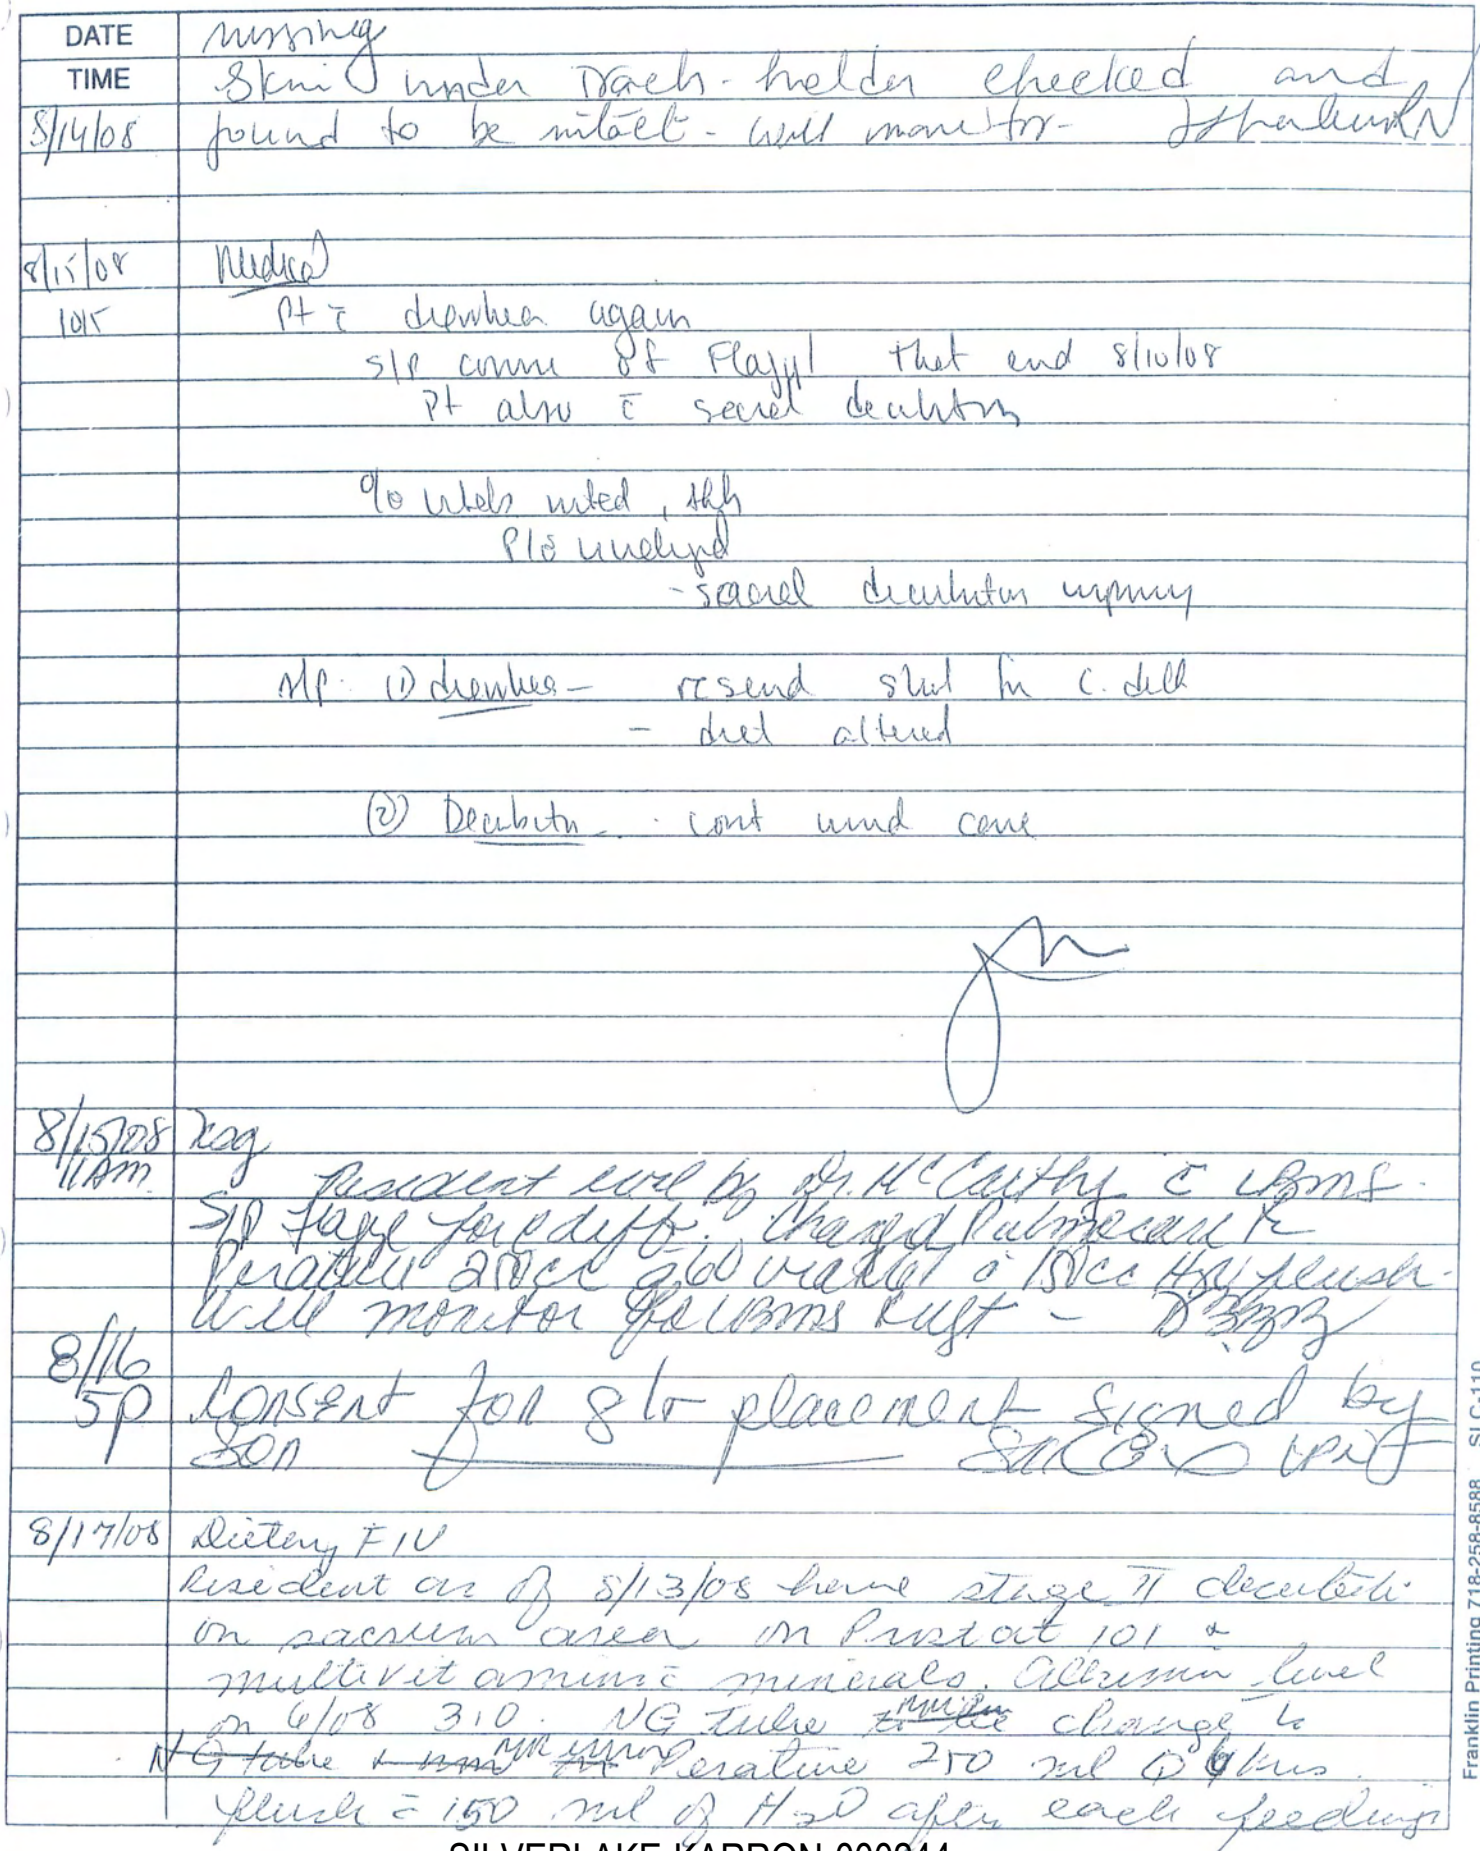 DATE nursing
TIME Skin under Trach-holder checked and
8/14/08 found to be intact - will monitor - RN
8/15/08 Medical
1015 Pt c̄ diarrhea again
s/p course of Flagyl that end 8/10/08
Pt also c̄ sacral decubitus
noted,
- sacral decubitus
(1) diarrhea - resend stool for C. diff
- diet altered
(2) Decubitus - cont wound care
8/15/08 Nsg
11AM Resident eval by Dr. McCarthy c̄ LBMs.
S/P Flagyl for c diff. Changed Pulmocare to
Perative 250cc q6o via NGT c̄ 150cc H2O flush.
Will monitor for LBMs
8/16
5p Consent for g/t placement signed by
son LPN
8/17/08 Dietary F/U
Resident as of 8/13/08 have stage II decubiti
on sacrum area on Prostat 101 &
multivitamin c̄ minerals. Albumin level
on 6/08 3.0. NG tube change to
NG tube Perative 250 ml Q 6 hrs.
flush c̄ 150 ml of H20 after each feeding.
Franklin Printing 718-258-8588 SLC-110
SILVERLAKE-KARRON-000244